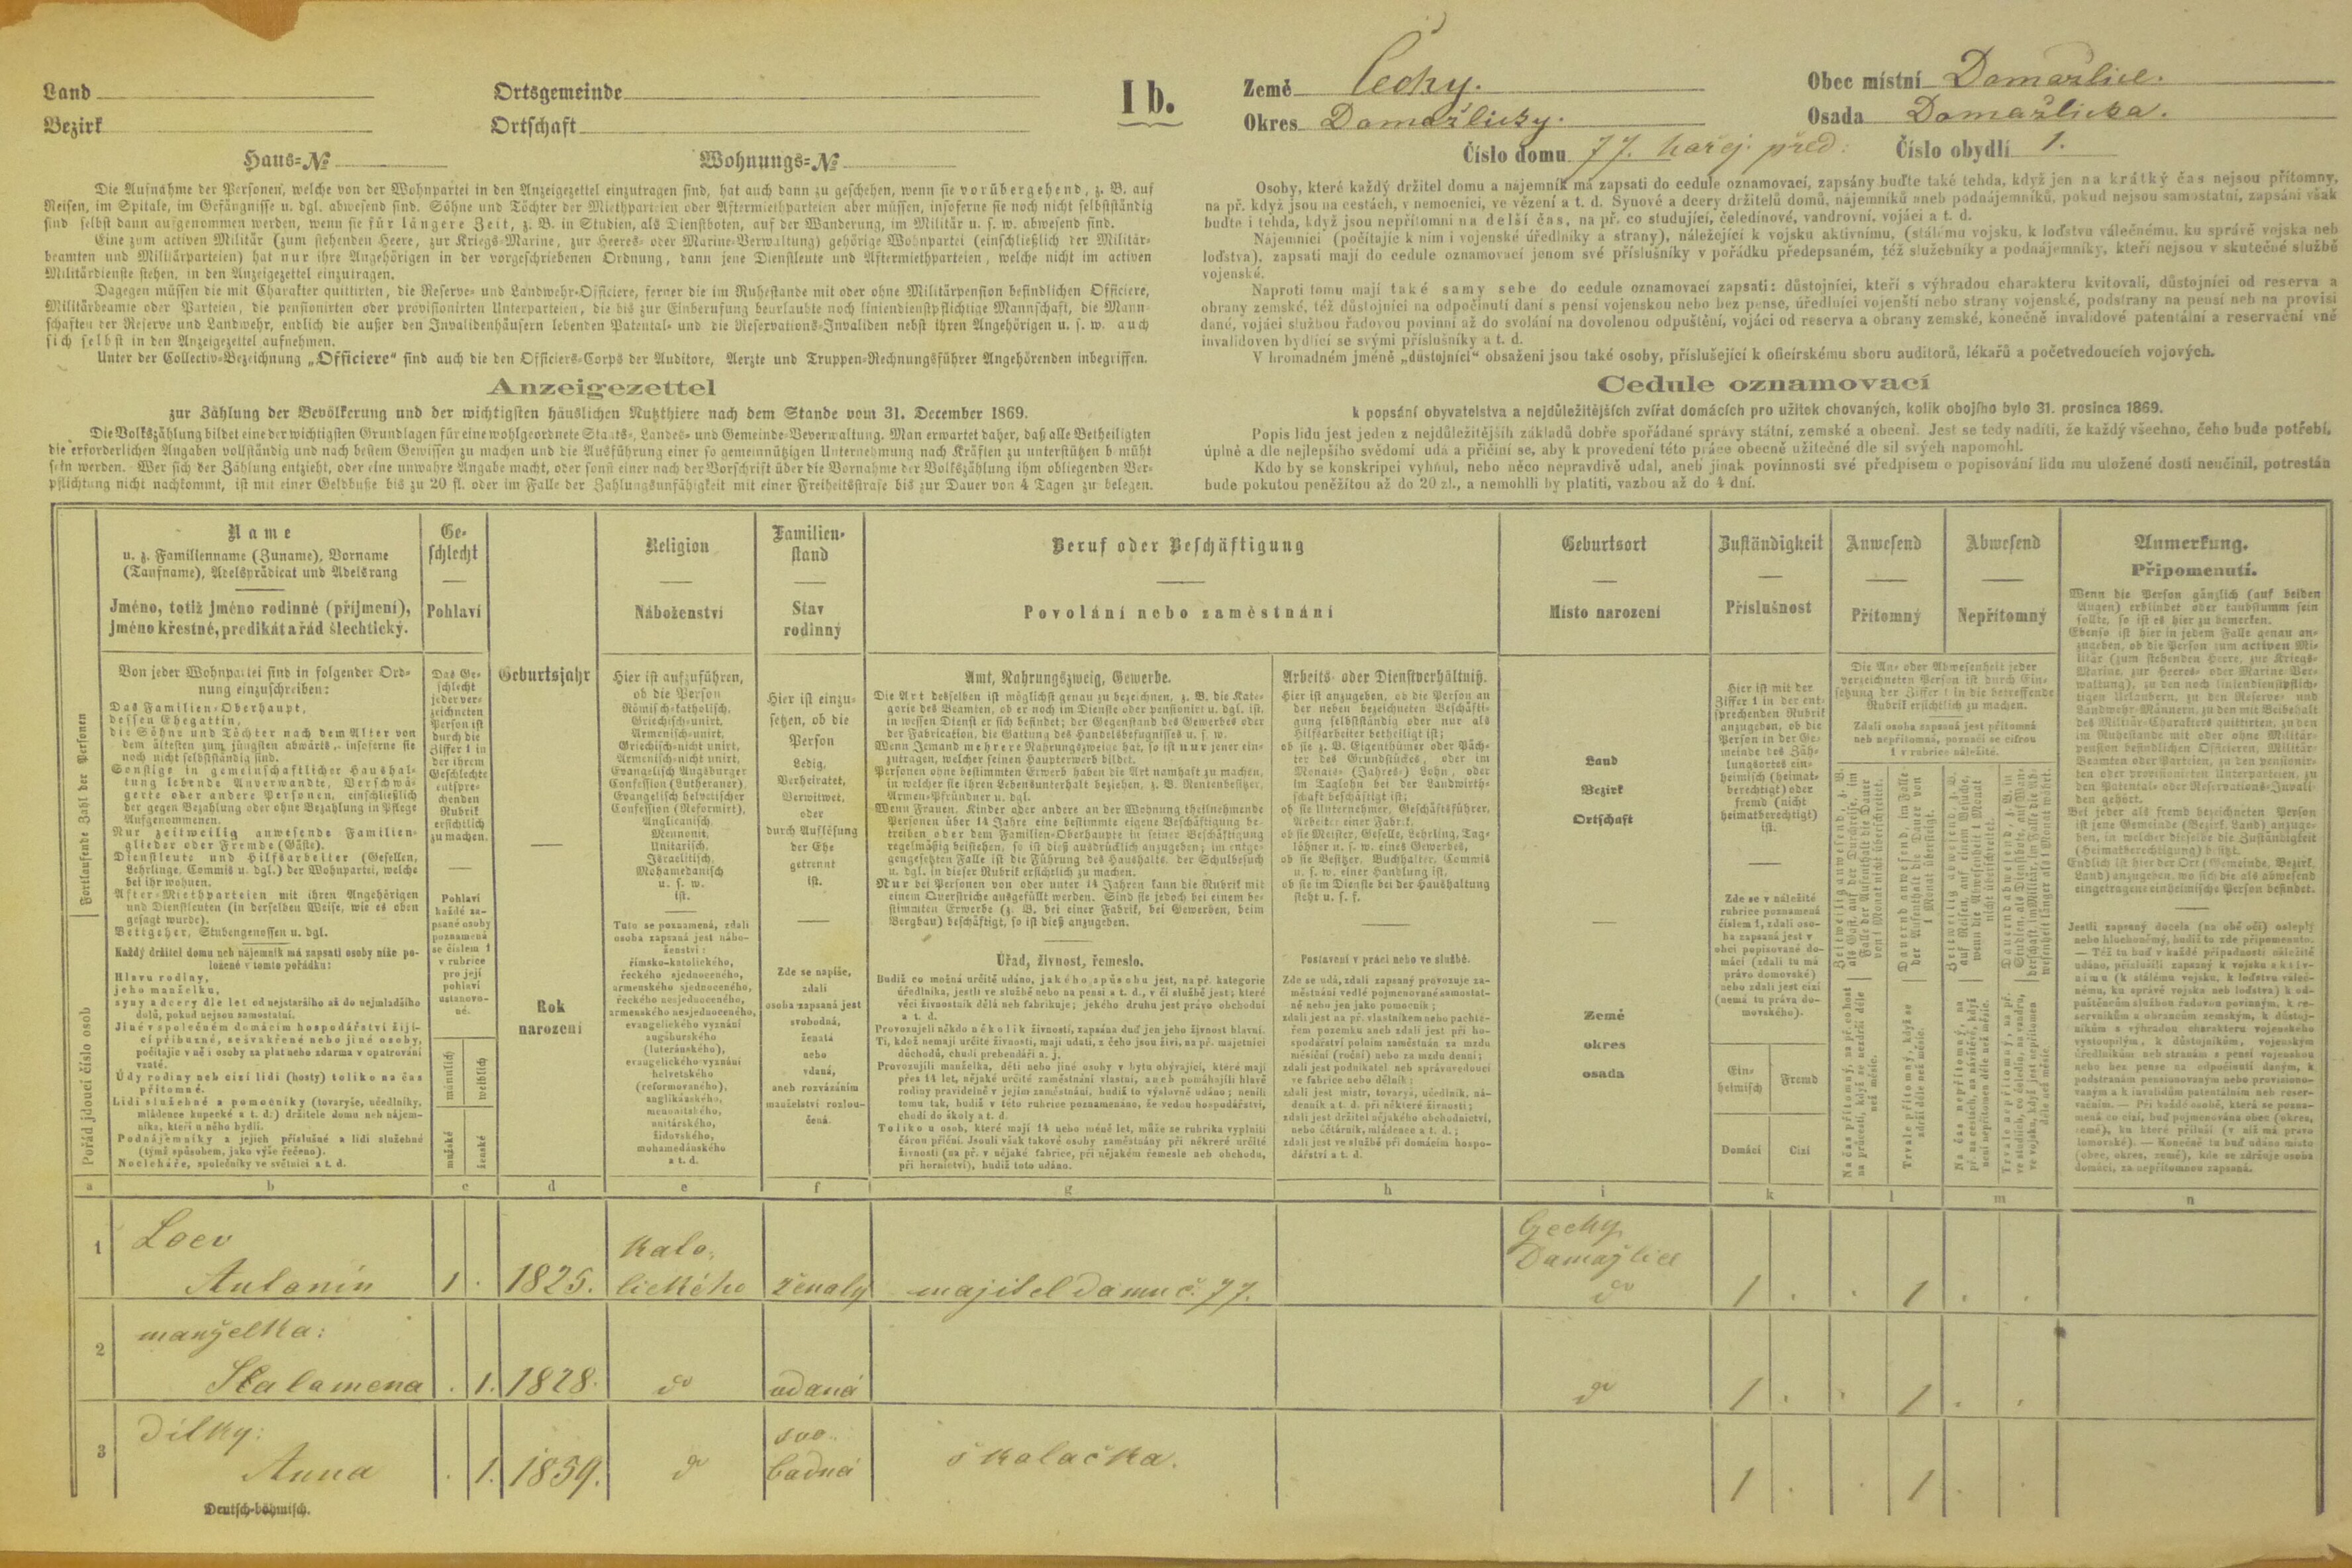 Land
Bezirk
Ortsgemeinde
Ortschaft
Haus-№
Wohnungs-№
I b.
Země Čechy.
Okres Domažlický.
Obec místní Domažlice.
Osada Domažlická.
Číslo domu 77. hořej. před:
Číslo obydlí 1.
Die Aufnahme der Personen, welche von der Wohnpartei in den Anzeigezettel einzutragen sind, hat auch dann zu geschehen, wenn sie vorübergehend, z. B. auf
Reisen, im Spitale, im Gefängnisse u. dgl. abwesend sind. Söhne und Töchter der Miethparteien oder Aftermiethparteien aber müssen, insoferne sie noch nicht selbstständig
sind selbst dann aufgenommen werden, wenn sie für längere Zeit, z. B. in Studien, als Dienstboten, auf der Wanderung, im Militär u. s. w. abwesend sind.
Eine zum activen Militär (zum stehenden Heere, zur Kriegs-Marine, zur Heeres- oder Marine-Verwaltung) gehörige Wohnpartei (einschließlich der Militär-
beamten und Militärparteien) hat nur ihre Angehörigen in der vorgeschriebenen Ordnung, dann jene Dienstleute und Aftermiethparteien, welche nicht im activen
Militärdienste stehen, in den Anzeigezettel einzutragen.
Dagegen müssen die mit Charakter quittirten, die Reserve- und Landwehr-Officiere, ferner die im Ruhestande mit oder ohne Militärpension befindlichen Officiere,
Militärbeamte oder Parteien, die pensionirten oder provisionirten Unterparteien, die bis zur Einberufung beurlaubte noch liniendienstpflichtige Mannschaft, die Mann-
schaften der Reserve und Landwehr, endlich die außer den Invalidenhäusern lebenden Patental- und die Reservations-Invaliden nebst ihren Angehörigen u. s. w. auch
sich selbst in den Anzeigezettel aufnehmen.
Unter der Collectiv-Bezeichnung „Officiere“ sind auch die den Officiers-Corps der Auditore, Aerzte und Truppen-Rechnungsführer Angehörenden inbegriffen.
Anzeigezettel
zur Zählung der Bevölkerung und der wichtigsten häuslichen Nutzthiere nach dem Stande vom 31. December 1869.
Die Volkszählung bildet eine der wichtigsten Grundlagen für eine wohlgeordnete Staats-, Landes- und Gemeinde-Verwaltung. Man erwartet daher, daß alle Betheiligten
die erforderlichen Angaben vollständig und nach bestem Gewissen zu machen und die Ausführung einer so gemeinnützigen Unternehmung nach Kräften zu unterstützen bemüht
sein werden. Wer sich der Zählung entzieht, oder eine unwahre Angabe macht, oder sonst einer nach der Vorschrift über die Vornahme der Volkszählung ihm obliegenden Ver-
pflichtung nicht nachkommt, ist mit einer Geldbuße bis zu 20 fl. oder im Falle der Zahlungsunfähigkeit mit einer Freiheitsstrafe bis zur Dauer von 4 Tagen zu belegen.
Osoby, které každý držitel domu a nájemník má zapsati do cedule oznamovací, zapsány buďte také tehda, když jen na krátký čas nejsou přítomny,
na př. když jsou na cestách, v nemocnici, ve vězení a t. d. Synové a dcery držitelů domů, nájemníků aneb podnájemníků, pokud nejsou samostatní, zapsáni však
buďte i tehda, když jsou nepřítomni na delší čas, na př. co studující, čeledínové, vandrovní, vojáci a t. d.
Nájemníci (počítajíc k nim i vojenské úředlníky a strany), náležející k vojsku aktivnímu, (stálému vojsku, k loďstvu válečnému, ku správě vojska neb
loďstva), zapsati mají do cedule oznamovací jenom své příslušníky v pořádku předepsaném, též služebníky a podnájemníky, kteří nejsou v skutečné službě
vojenské.
Naproti tomu mají také samy sebe do cedule oznamovací zapsati: důstojníci, kteří s výhradou charakteru kvitovali, důstojníci od reserva a
obrany zemské, též důstojníci na odpočinutí daní s pensí vojenskou nebo bez pense, úředlníci vojenští nebo strany vojenské, podstrany na pensi neb na provisi
dané, vojáci službou řadovou povinní až do svolání na dovolenou odpuštění, vojáci od reserva a obrany zemské, konečně invalidové patentální a reservační vně
invalidoven bydlící se svými příslušníky a t. d.
V hromadném jméně „důstojníci“ obsaženi jsou také osoby, příslušející k oficírskému sboru auditorů, lékařů a početvedoucích vojových.
Cedule oznamovací
k popsání obyvatelstva a nejdůležitějších zvířat domácích pro užitek chovaných, kolik obojího bylo 31. prosince 1869.
Popis lidu jest jeden z nejdůležitějších základů dobře spořádané správy státní, zemské a obecní. Jest se tedy nadíti, že každý všechno, čeho bude potřebí,
úplně a dle nejlepšího svědomí udá a přičiní se, aby k provedení této práce obecně užitečné dle sil svých napomohl.
Kdo by se konskripci vyhnul, nebo něco nepravdivě udal, aneb jinak povinnosti své předpisem o popisování lidu mu uložené dosti neučinil, potrestán
bude pokutou peněžitou až do 20 zl., a nemohlli by platiti, vazbou až do 4 dní.
Fortlaufende Zahl der Personen
Pořád jdoucí číslo osob
Name
u. z. Familienname (Zuname), Vorname
(Taufname), Adelsprädicat und Adelsrang
Jméno, totiž jméno rodinné (příjmení),
jméno křestné, predikát a řád šlechtický.
Von jeder Wohnpartei sind in folgender Ord-
nung einzuschreiben:
Das Familien-Oberhaupt,
dessen Ehegattin,
die Söhne und Töchter nach dem Alter von
dem ältesten zum jüngsten abwärts, insoferne sie
noch nicht selbstständig sind.
Sonstige in gemeinschaftlicher Haushal-
tung lebende Anverwandte, Verschwä-
gerte oder andere Personen, einschließlich
der gegen Bezahlung oder ohne Bezahlung in Pflege
Aufgenommenen.
Nur zeitweilig anwesende Familien-
glieder oder Fremde (Gäste).
Dienstleute und Hilfsarbeiter (Gesellen,
Lehrlinge, Commis u. dgl.) der Wohnpartei, welche
bei ihr wohnen.
After-Miethparteien mit ihren Angehörigen
und Dienstleuten (in derselben Weise, wie es oben
gesagt wurde).
Bettgeher, Stubengenossen u. dgl.
Každý držitel domu neb nájemník má zapsati osoby níže po-
ložené v tomto pořádku:
Hlavu rodiny,
jeho manželku,
syny a dcery dle let od nejstaršího až do nejmladšího
dolů, pokud nejsou samostatní.
Jiné v společném domácím hospodářství žijí-
cí příbuzné, sešvakřené nebo jiné osoby,
počítajíc v ně i osoby za plat nebo zdarma v opatrování
vzaté.
Údy rodiny neb cizí lidi (hosty) toliko na čas
přítomné.
Lidi služebné a pomocníky (tovaryše, učedlníky,
mládence kupecké a t. d.) držitele domu neb nájem-
níka, kteří u něho bydlí.
Podnájemníky a jejich příslušné a lidi služebné
(týmž spůsobem, jako výše řečeno).
Nocleháře, společníky ve světnici a t. d.
Ge-
schlecht
Pohlaví
Das Ge-
schlecht
jeder ver-
zeichneten
Person ist
durch die
Ziffer 1 in
der ihrem
Geschlechte
entspre-
chenden
Rubrik
ersichtlich
zu machen.
Pohlaví
každé za-
psané osoby
poznamená
se číslem 1
v rubrice
pro její
pohlaví
ustanove-
né.
männlich
weiblich
mužské
ženské
Geburtsjahr
Rok
narození
Religion
Náboženství
Hier ist aufzuführen,
ob die Person
Römisch-katholisch,
Griechisch-unirt,
Armenisch-unirt,
Griechisch-nicht unirt,
Armenisch-nicht unirt,
Evangelisch Augsburger
Confession (Lutheraner),
Evangelisch helvetischer
Confession (Reformirt),
Anglicanisch,
Mennonit,
Unitarisch,
Israelitisch,
Mohamedanisch
u. s. w.
ist.
Tuto se poznamená, zdali
osoba zapsaná jest nábo-
ženství:
římsko-katolického,
řeckého sjednoceného,
armenského sjednoceného,
řeckého nesjednoceného,
armenského nesjednoceného,
evangelického vyznání
augšburského
(luteránského),
evangelického vyznání
helvetského
(reformovaného),
anglikánského,
menonitského,
unitárského,
židovského,
mohamedánského
a t. d.
Familien-
stand
Stav
rodinný
Hier ist einzu-
setzen, ob die
Person
Ledig,
Verheiratet,
Verwitwet,
oder
durch Auflösung
der Ehe
getrennt
ist.
Zde se napíše,
zdali
osoba zapsaná jest
svobodná,
ženatá
nebo
vdaná,
aneb rozvázáním
manželství rozlou-
čená.
Beruf oder Beschäftigung
Povolání nebo zaměstnání
Amt, Nahrungszweig, Gewerbe.
Die Art desselben ist möglichst genau zu bezeichnen, z. B. die Kate-
gorie des Beamten, ob er noch im Dienste oder pensionirt u. dgl. ist,
in wessen Dienst er sich befindet; der Gegenstand des Gewerbes oder
der Fabrication, die Gattung des Handelsbefugnisses u. s. w.
Wenn Jemand mehrere Nahrungszweige hat, so ist nur jener ein-
zutragen, welcher seinen Haupterwerb bildet.
Personen ohne bestimmten Erwerb haben die Art namhaft zu machen,
in welcher sie ihren Lebensunterhalt beziehen, z. B. Rentenbesitzer,
Armen-Pfründner u. dgl.
Wenn Frauen, Kinder oder andere an der Wohnung theilnehmende
Personen über 14 Jahre eine bestimmte eigene Beschäftigung be-
treiben oder dem Familien-Oberhaupte in seiner Beschäftigung
regelmäßig beistehen, so ist dieß ausdrücklich anzugeben; im entge-
gengesetzten Falle ist die Führung des Haushalts, der Schulbesuch
u. dgl. in dieser Rubrik ersichtlich zu machen.
Nur bei Personen von oder unter 14 Jahren kann die Rubrik mit
einem Querstriche ausgefüllt werden. Sind sie jedoch bei einem be-
stimmten Erwerbe (z. B. bei einer Fabrik, bei Gewerben, beim
Bergbau) beschäftigt, so ist dieß anzugeben.
Úřad, živnost, řemeslo.
Budiž co možná určitě udáno, jakého spůsobu jest, na př. kategorie
úředlníka, jestli ve službě nebo na pensi a t. d., v čí službě jest; které
věci živnostník dělá neb fabrikuje; jakého druhu jest právo obchodní
a t. d.
Provozujeli někdo několik živností, zapsána buď jen jeho živnost hlavní.
Ti, kdož nemají určité živnosti, mají udati, z čeho jsou živi, na př. majetníci
důchodů, chudí prebendáři a. j.
Provozujíli manželka, děti nebo jiné osoby v bytu obývající, které mají
přes 14 let, nějaké určité zaměstnání vlastní, aneb pomáhajíli hlavě
rodiny pravidelně v jejím zaměstnání, budiž to výslovně udáno; neníli
tomu tak, budiž v této rubrice poznamenáno, že vedou hospodářství,
chodí do školy a t. d.
Toliko u osob, které mají 14 nebo méně let, může se rubrika vyplniti
čárou příční. Jsouli však takové osoby zaměstnány při některé určité
živnosti (na př. v nějaké fabrice, při nějakém řemesle neb obchodu,
při hornictví), budiž toto udáno.
Arbeits- oder Dienstverhältniß.
Hier ist anzugeben, ob die Person an
der neben bezeichneten Beschäfti-
gung selbstständig oder nur als
Hilfsarbeiter betheiligt ist;
ob sie z. B. Eigenthümer oder Päch-
ter des Grundstückes, oder im
Monats- (Jahres-) Lohn, oder
im Taglohn bei der Landwirth-
schaft beschäftigt ist;
ob sie Unternehmer, Geschäftsführer,
Arbeiter einer Fabrik,
ob sie Meister, Geselle, Lehrling, Tag-
löhner u. s. w. eines Gewerbes,
ob sie Besitzer, Buchhalter, Commis
u. s. w. einer Handlung ist,
ob sie im Dienste bei der Haushaltung
steht u. s. f.
Postavení v práci nebo ve službě.
Zde se udá, zdali zapsaný provozuje za-
městnání vedlé pojmenované samostat-
ně nebo jen jako pomocník;
zdali jest na př. vlastníkem nebo pachtě-
řem pozemku aneb zdali jest při ho-
spodářství polním zaměstnán za mzdu
měsíční (roční) nebo za mzdu denní;
zdali jest podnikatel neb správovedoucí
ve fabrice nebo dělník;
zdali jest mistr, tovaryš, učedlník, ná-
denník a t. d. při některé živnosti;
zdali jest držitel nějakého obchodnictví,
nebo účtárník, mládenec a t. d.;
zdali jest ve službě při domácím hospo-
dářství a t. d.
Geburtsort
Místo narození
Land
Bezirk
Ortschaft
Země
okres
osada
Zuständigkeit
Příslušnost
Hier ist mit der
Ziffer 1 in der ent-
sprechenden Rubrik
anzugeben, ob die
Person in der Ge-
meinde des Zäh-
lungsortes ein-
heimisch (heimat-
berechtigt) oder
fremd (nicht
heimatberechtigt)
ist.
Zde se v náležité
rubrice poznamená
číslem 1, zdali oso-
ba zapsaná jest v
obci popisované do-
mácí (zdali tu má
právo domovské)
nebo zdali jest cizí
(nemá tu práva do-
movského).
Ein-
heimisch
Fremd
Domácí
Cizí
Anwesend
Přítomný
Abwesend
Nepřítomný
Die An- oder Abwesenheit jeder
verzeichneten Person ist durch Ein-
setzung der Ziffer 1 in die betreffende
Rubrik ersichtlich zu machen.
Zdali osoba zapsaná jest přítomná
neb nepřítomná, poznačí se cifrou
1 v rubrice náležité.
Zeitweilig anwesend, z. B.
als Gast, auf der Durchreise, im
Falle der Aufenthalt die Dauer
von 1 Monat nicht überschreitet.
Dauernd anwesend, im Falle
der Aufenthalt die Dauer von
1 Monat übersteigt.
Zeitweilig abwesend, z. B.
auf Reisen, auf einem Besuche,
wenn die Abwesenheit 1 Monat
nicht überschreitet.
Dauernd abwesend, z. B. in
Studien, als Dienstbote, auf Wan-
derschaft, im Militär, im Falle die Ab-
wesenheit länger als 1 Monat währet.
Na čas přítomný, na př. co host
na průcestí, když se nezdrží déle
než měsíc.
Trvale přítomný, když se
zdrží déle než měsíc.
Na čas nepřítomný, na
př. na cestách, na návštěvě, když
není nepřítomen déle než měsíc.
Trvale nepřítomný, na př.
ve studiích, co čeledín, na vandru,
ve vojsku, když jest nepřítomen
déle než měsíc.
Anmerkung.
Připomenutí.
Wenn die Person gänzlich (auf beiden
Augen) erblindet oder taubstumm sein
sollte, so ist es hier zu bemerken.
Ebenso ist hier in jedem Falle genau an-
zugeben, ob die Person zum activen Mi-
litär (zum stehenden Heere, zur Kriegs-
Marine, zur Heeres- oder Marine-Ver-
waltung), zu den noch liniendienstpflich-
tigen Urlaubern, zu den Reserve- und
Landwehr-Männern, zu den mit Beibehalt
des Militär-Charakters quittirten, zu den
im Ruhestande mit oder ohne Militär-
pension befindlichen Officieren, Militär-
Beamten oder Parteien, zu den pensionir-
ten oder provisionirten Unterparteien, zu
den Patental- oder Reservations-Invali-
den gehört.
Bei jeder als fremd bezeichneten Person
ist jene Gemeinde (Bezirk, Land) anzuge-
ben, in welcher dieselbe die Zuständigkeit
(Heimatberechtigung) besitzt.
Endlich ist hier der Ort (Gemeinde, Bezirk,
Land) anzugeben, wo sich die als abwesend
eingetragene einheimische Person befindet.
Jestli zapsaný docela (na obě oči) oslepý
nebo hluchoněmý, budiž to zde připomenuto.
— Též tu buď v každé případnosti náležitě
udáno, příslušíli zapsaný k vojsku aktiv-
nímu (k stálému vojsku, k loďstvu váleč-
nému, ku správě vojska neb loďstva) k od-
puštěncům službou řadovou povinným, k re-
servníkům a obrancům zemským, k důstoj-
níkům s výhradou charakteru vojenského
vystouplým, k důstojníkům, vojenským
úředlníkům neb stranám s pensí vojenskou
nebo bez pense na odpočinutí daným, k
podstranám pensionovaným nebo provisiono-
vaným a k invalidům patentálním neb reser-
vačním. — Při každé osobě, která se pozna-
mená co cizí, buď pojmenována obec (okres,
země), ku které přísluší (v níž má právo
domovské). — Konečně tu buď udáno místo
(obec, okres, země), kde se zdržuje osoba
domácí, za nepřítomnou zapsaná.
a b c d e f g h i k l m n
1 Loev
Antonín 1 . 1825. kato-
lického ženatý majitel domu č. 77. Čechy
Domažlice
do 1 . . 1 . .
2 manželka:
. 1. 1828. do vdaná do 1 . . 1 . .
3 dítky:
Anna . 1. 1859. do svo-
bodná školačka. 1 . . 1 . .
Deutsch-böhmisch.